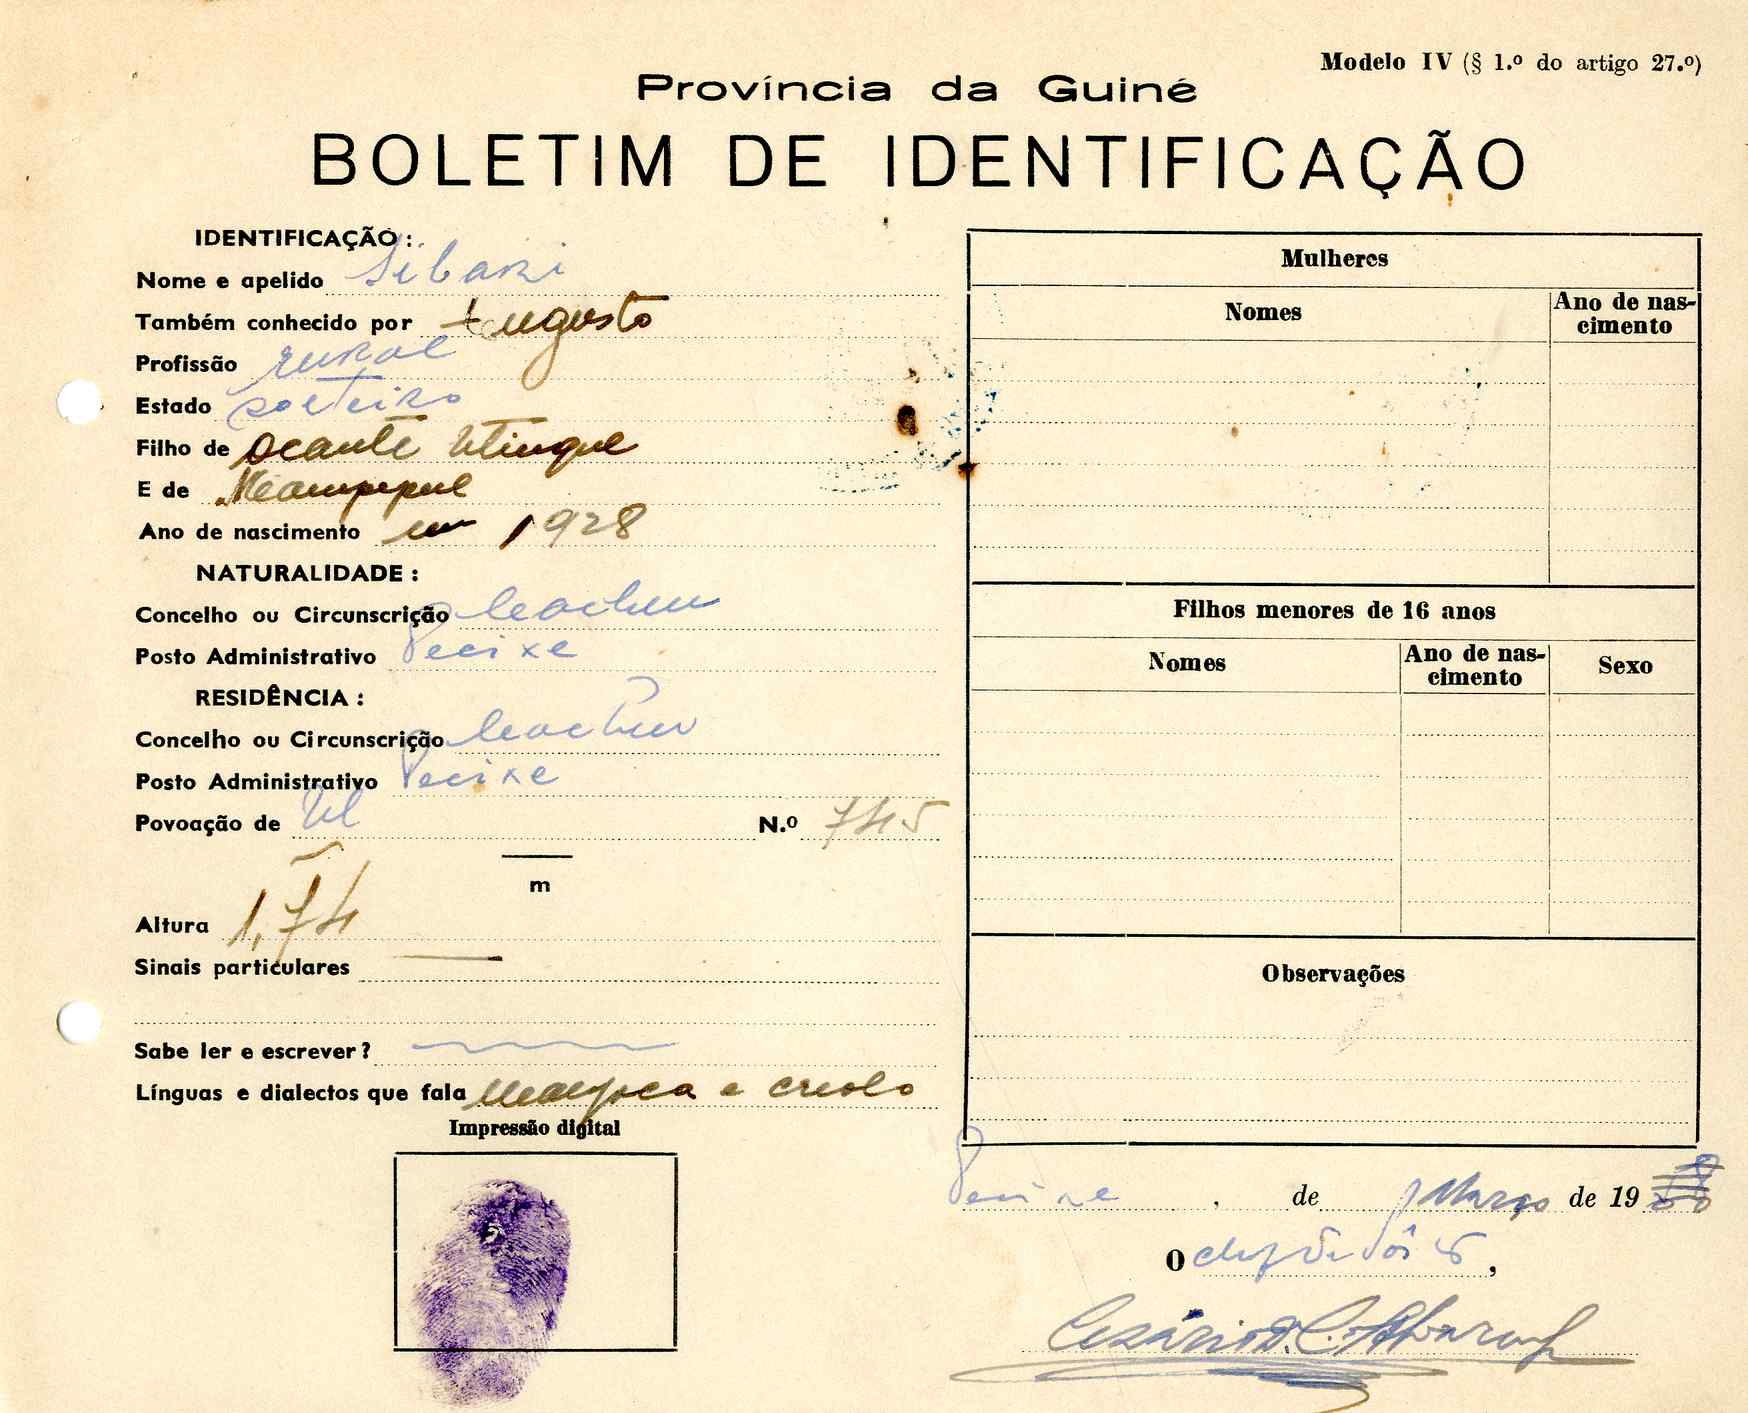 Modelo IV (§ 1.º do artigo 27.º)
Província da Guiné
BOLETIM DE IDENTIFICAÇÃO
IDENTIFICAÇÃO:
Nome e apelido
Também conhecido por Augusto
Profissão rural
Estado solteiro
Filho de Ocante
E de
Ano de nascimento em 1928
NATURALIDADE:
Concelho ou Circunscrição Cacheu
Posto Administrativo Pecixe
RESIDÊNCIA:
Concelho ou Circunscrição Cacheu
Posto Administrativo Pecixe
Povoação de N.º 745
m
Altura 1,74
Sinais particulares
Sabe ler e escrever?
Línguas e dialectos que fala Manjaca e creolo
Impressão digital
Mulheres
Nomes Ano de nascimento
Filhos menores de 16 anos
Nomes Ano de nascimento Sexo
Observações
Pecixe, de Março de 19
O